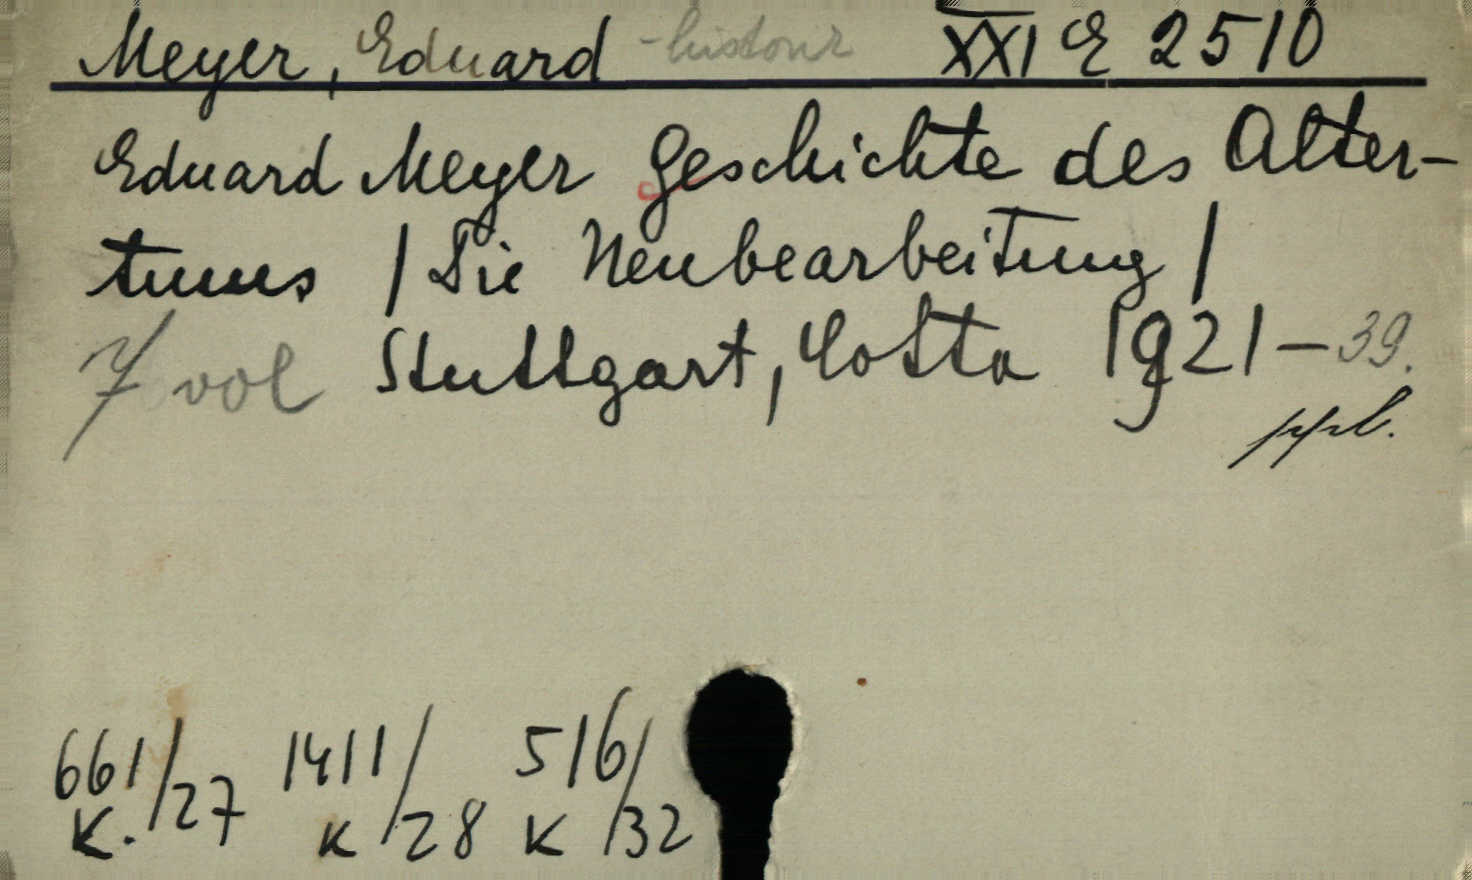 Meyer, Eduard - historik XXI E 2510
Eduard Meyer Geschichte des Alter-
tums / Die Neubearbeitung /
7 vol Stuttgart, Cotta 1921-39.
ppl.
661/27 1411/28 516/32
K. K K